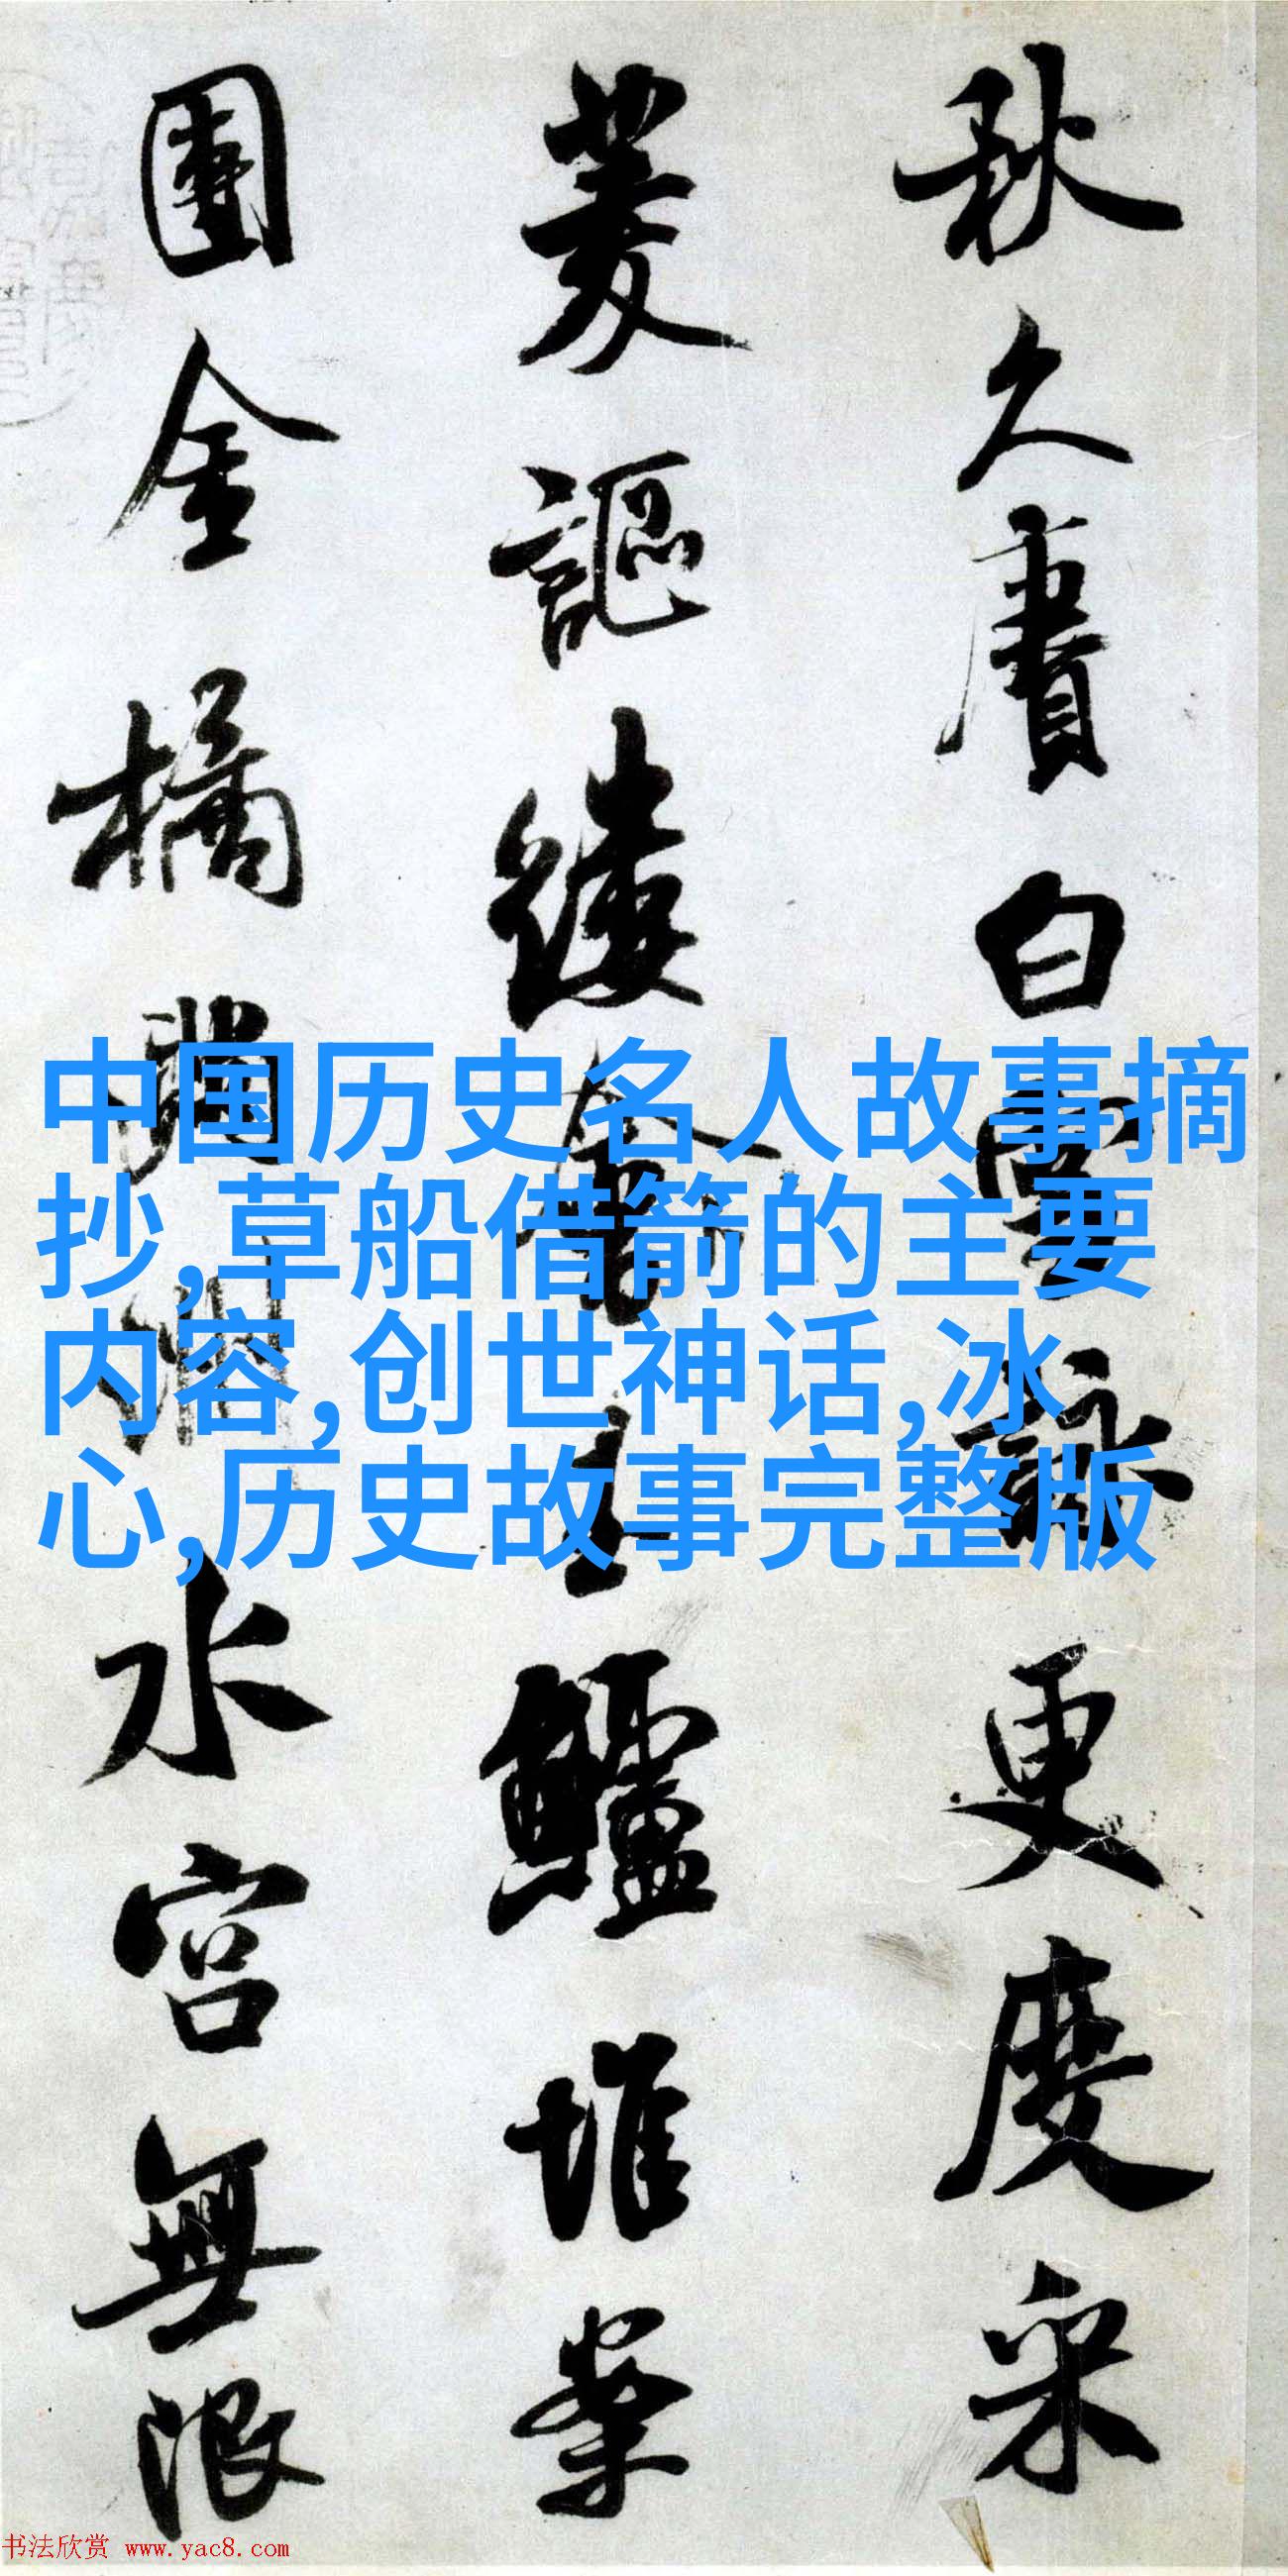 秋久賡白雪詠更度采
菱謳縷金玉鱸堆案
團金橘滿洲水宮無限
中国历史名人故事摘
抄,草船借箭的主要
内容,创世神话,冰
心,历史故事完整版
书法欣赏 www.yac8.com